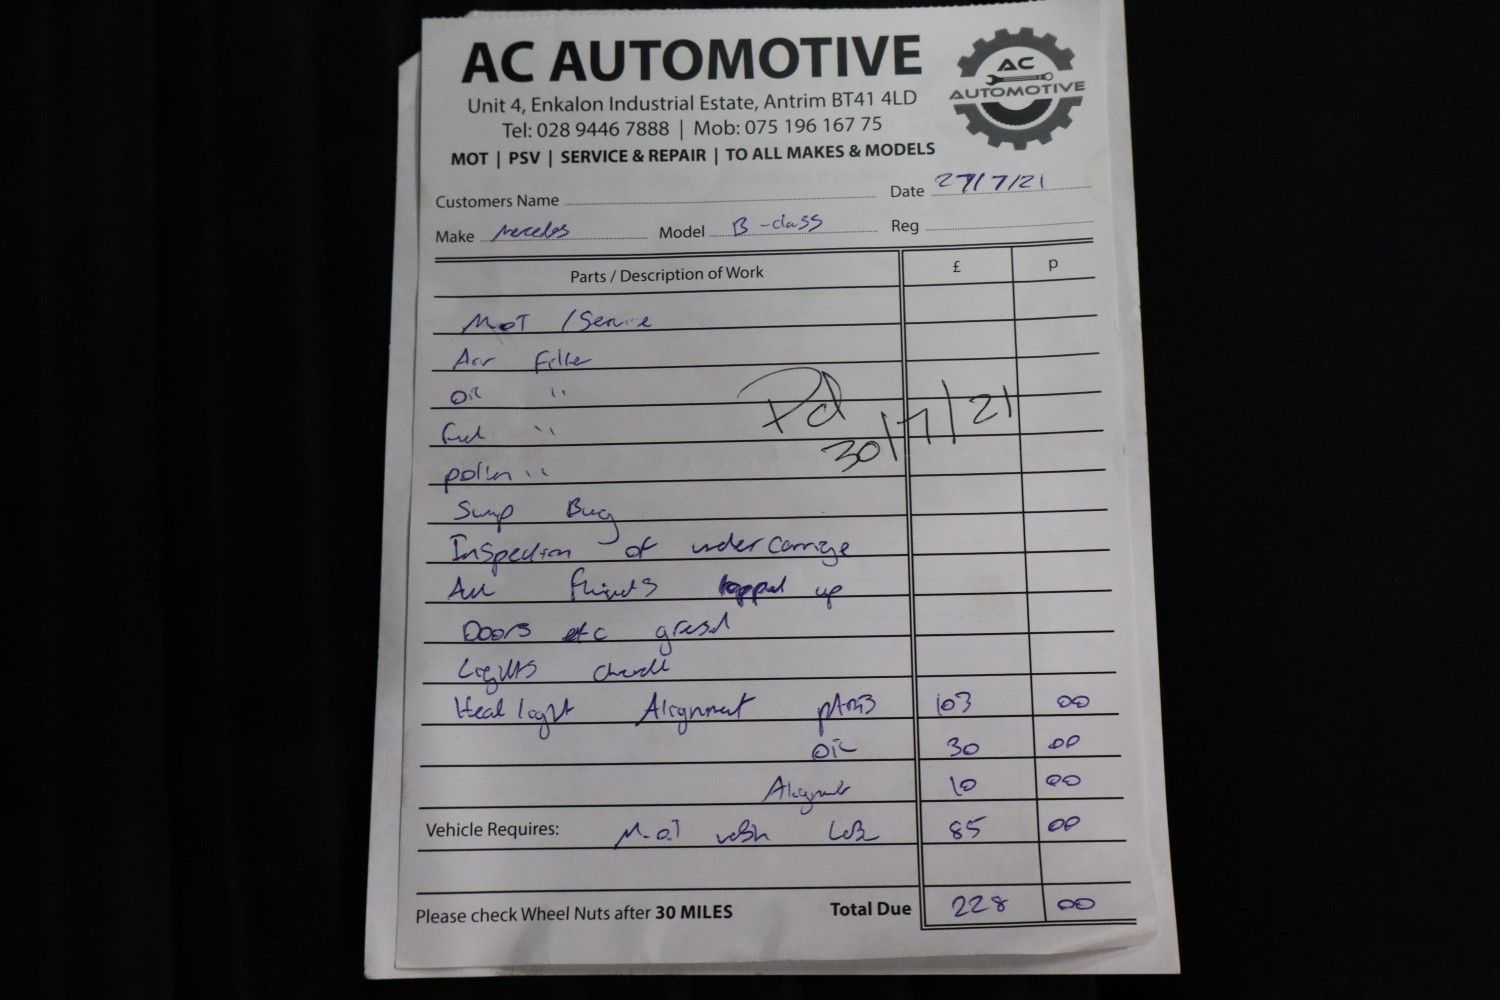 AC AUTOMOTIVE
Unit 4, Enkalon Industrial Estate, Antrim BT41 4LD
Tel: 028 9446 7888 | Mob: 075 196 167 75
MOT | PSV | SERVICE & REPAIR | TO ALL MAKES & MODELS
AC
AUTOMOTIVE
Customers Name Date 27/7/21
Make Mercedes Model B-class Reg
Parts / Description of Work £ p
MOT / Service
Air Filter
Oil "
Fuel "
pollen "
Pd
30/7/21
Sump
Inspection of undercarrige
All fluids topped up
Doors etc gresd
Lights
Head light Alignment parts 103 00
Oil 30 00
10 00
Vehicle Requires: M.O.T 85 00
Please check Wheel Nuts after 30 MILES Total Due 228 00